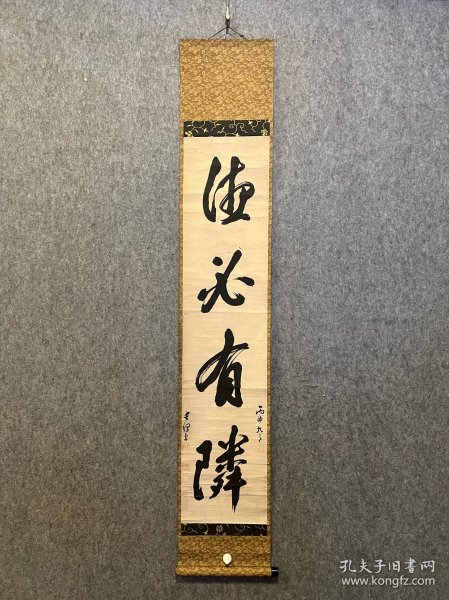 德必有隣
孔夫子旧书网
www.kongfz.com